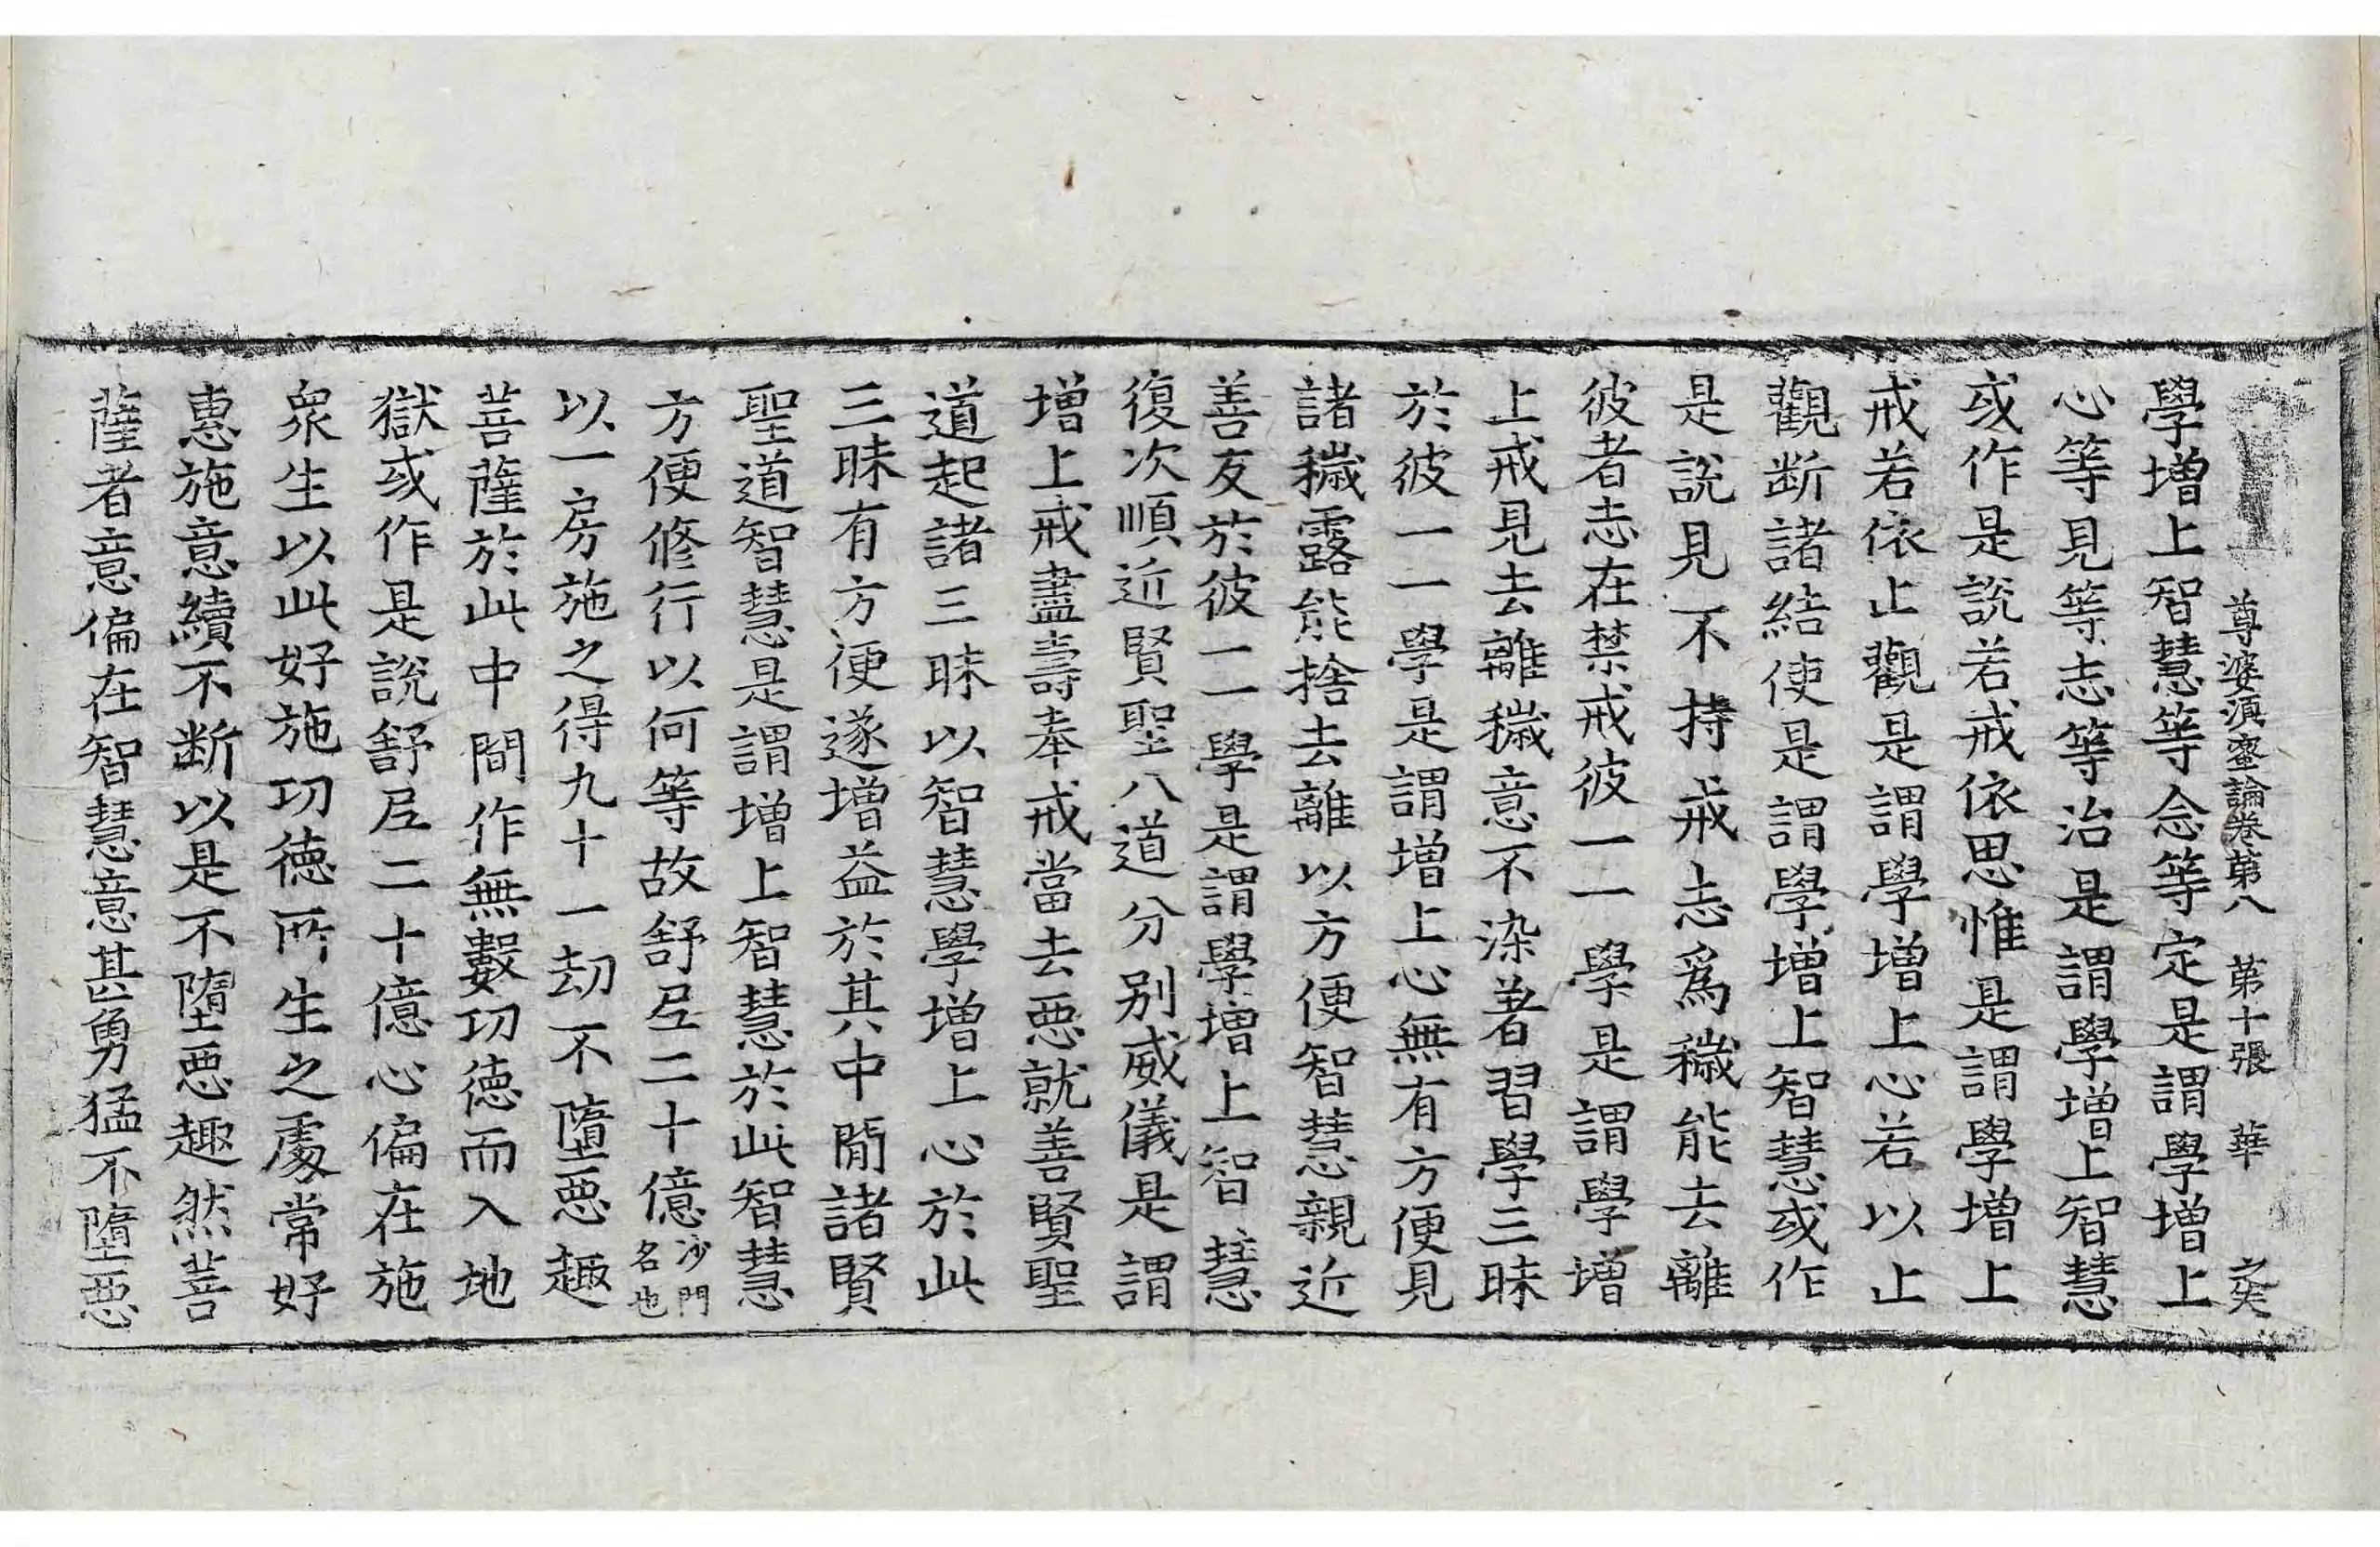 尊婆湏蜜論卷第八 第十張 華
學增上智慧等念等定是謂學增上
心等見等志等治是謂學增上智慧
或作是說若戒依思惟是謂學增上
戒若依止觀是謂學增上心若以止
觀断諸結使是謂學增上智慧或作
是說見不持戒志爲穢能去離
彼者志在禁戒彼一一學是謂學增
上戒見去離穢意不染著習學三昧
於彼一一學是謂增上心無有方便見
諸穢露能捨去離以方便智慧親近
善友於彼一一學是謂學增上智慧
復次順近賢聖八道分别威儀是謂
增上戒盡壽奉戒當去惡就善賢聖
道起諸三昧以智慧學增上心於此
三昧有方便遂增益於其中間諸賢
聖道智慧是謂增上智慧於此智慧
方便修行以何等故舒𡰱二十億沙門名也
以一房施之得九十一劫不墮惡趣
菩薩於此中間作無數功德而入地
獄或作是說舒𡰱二十億心偏在施
衆生以此好施功德所生之處常好
惠施意續不断以是不墮惡趣然菩
薩者意偏在智慧意甚勇猛不墮惡